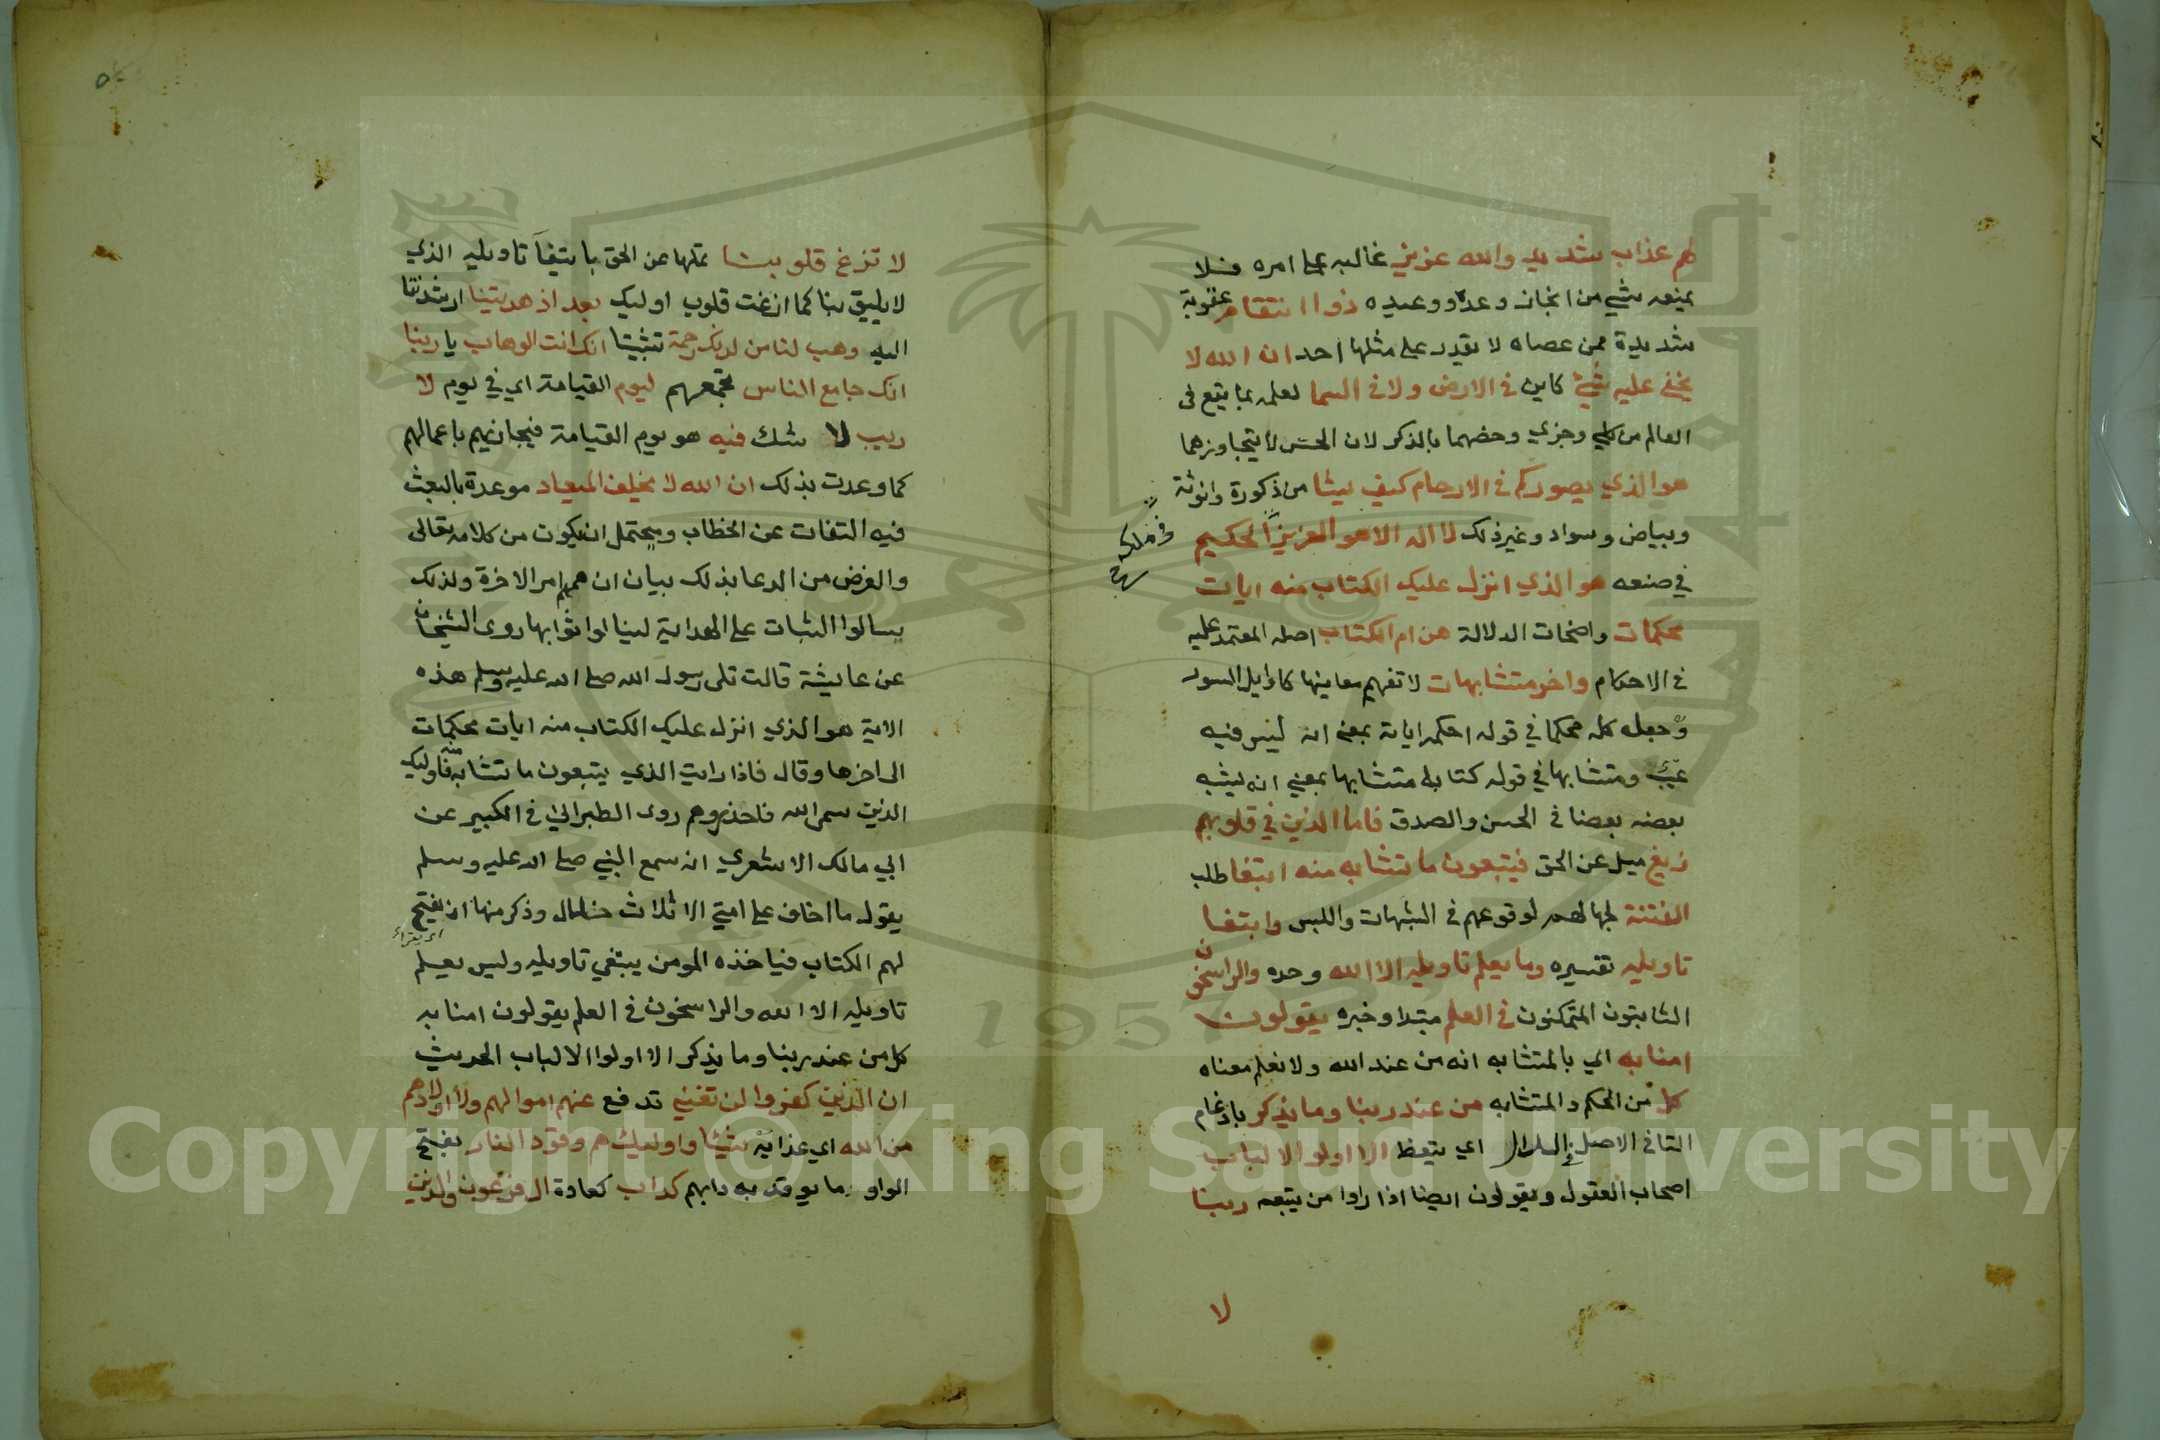 لهم عذاب شديد والله عزيز غالب على امره فلا
يمنعه شي من انجاز وعده ووعيده ذوا انتقام عقوبة
شديدة ممن عصاه لا يقدر على مثلها احد ان الله لا
يخفى عليه شيء كاين في الارض ولا في السما لعلمه بما يقع في
العالم من كلي وجزي وخصهما بالذكر لان الحس لا يتجاوزهما
هو الذي يصوركم في الارحام كيف يشا من ذكورة وانوثة
وبياض وسواد وغير ذلك لا اله الا هو العزيز الحكيم
في ملكه
في صنعه هو الذي انزل عليك الكتاب منه ايات
محكمات واضحات الدلالة هن ام الكتاب اصله المعتمد عليه
في الاحكام واخر متشابهات لا تفهم معاينها كاوايل السور
وجعله كله محكما في قوله احكمه اياته بمعنى انه ليس فيه
عيب ومتشابها في قوله كتابا متشابها بمعنى انه يشبه
بعضه بعضا في الحسن والصدق فاما الذين في قلوبهم
زيغ ميل عن الحق فيتبعون ما تشابه منه ابتغا طلب
الفتنة لجهالهم لوقوعهم في الشبهات واللبس وابتغا
تاويله تفسيره وما يعلم تاويله الا الله وحده والراسخون
الثابتون المتمكنون في العلم مبتدا وخبره يقولون
امنا به اي بالمتشابه انه من عند الله ولا نعلم معناه
كل من المحكم والمتشابه من عند ربنا وما يذكر بادغام
التا في الاصل في الدال اي يتعظ الا اولو الالباب
اصحاب العقول ويقولون ايضا اذا راوا من يتبعه ربنا
لا
لا تزغ قلوبنا تملها عن الحق بابتغاء تاويله الذي
لا يليق بنا كما ازغت قلوب اوليك بعد اذ هديتنا ارشدتنا
اليه وهب لنا من لدنك رحمة تثبيتا انك انت الوهاب يا ربنا
انك جامع الناس تجمعهم ليوم القيامة اي في يوم لا
ريب لا شك فيه هو يوم القيامة فيجازيهم باعمالهم
كما وعدت بذلك ان الله لا يخلف الميعاد موعدة بالبعث
فيه التفات عن الخطاب ويحتمل ان يكون من كلامه تعالى
والغرض من الدعا بذلك بيان ان همهم امر الاخرة ولذلك
يسالوا الثبات على الهداية لينالوا ثوابها روى الشيخان
عن عايشة قالت تلى رسول الله صلى الله عليه وسلم هذه
الاية هو الذي انزل عليك الكتاب منه ايات محكمات
الى اخرها وقال فاذا رايت الذي يتبعون ما تشابه منه فاوليك
الذين سمى الله فاحذروهم روى الطبراني في الكبير عن
ابي مالك الاشعري انه سمع النبي صلى الله عليه وسلم
يقول ما اخاف على امتي الا ثلاث خلال وذكر منها ان يفتح
اي يقراء
لهم الكتاب فياخذه المومن يبتغي تاويله وليس يعلم
تاويله الا الله والراسخون في العلم يقولون امنا به
كل من عند ربنا وما يذكر الا اولوا الالباب الحديث
ان الذين كفروا لن تغني تدفع عنهم اموالهم ولا اولادهم
من الله اي عذابه شيئا واوليك هم وقود النار بفتح
الواو ما يوقد به دابهم كداب كعادة ال فرعون والذين
Copyright © King Saud University
1957